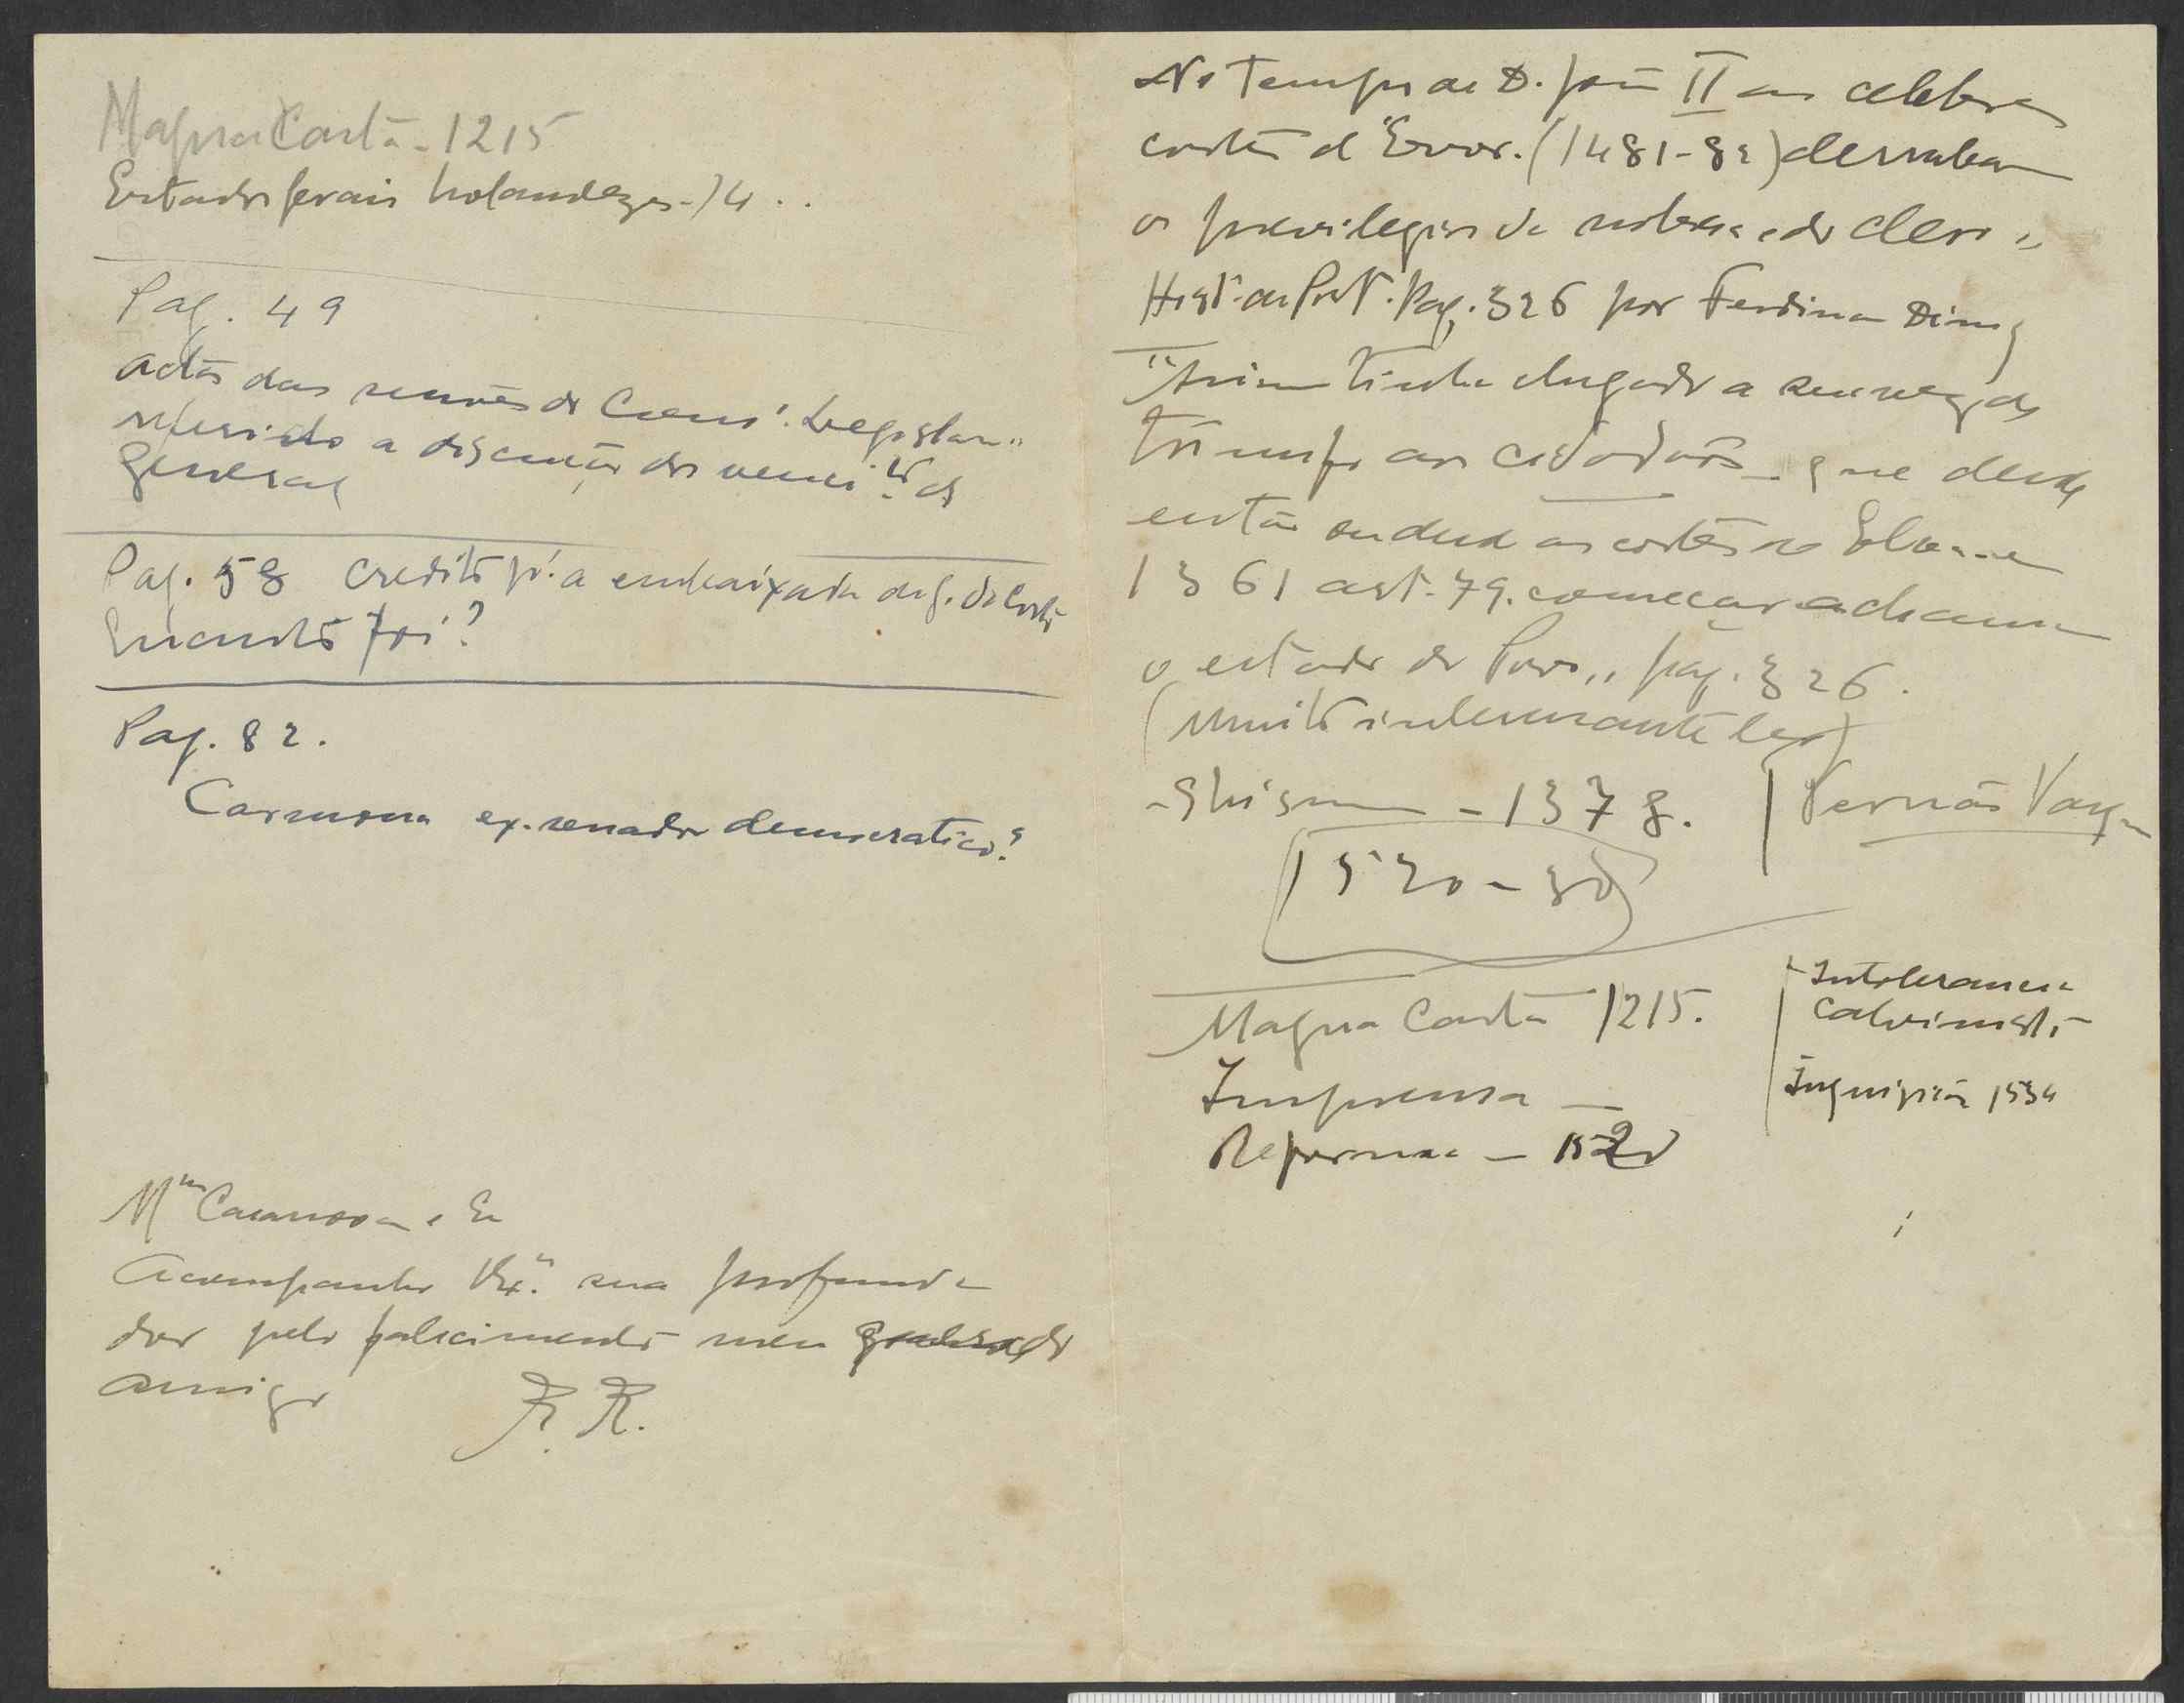 Magna Carta - 1215
Estados gerais holandezes - 14 . .
Pag. 49
actas das sessões do Cons. Legisla
referido a discussão dos venci.tos de
general
Pag. 58 credito p.ª a embaixada do g. da Costa
Quanto foi?
Pag. 82.
Carmona ex. senador democratico?
M.me Casanova e
Acompanho V. Ex.ª sua profunda
dor pelo falecimento meu
amigo R. R.
No tempo de D. João II as celebres
cortes d'Evora. (1481-82) derrubam
os previlegios da nobreza e do clero "
Hist. de Port. Pag. 326 por Ferdinan Diniz
"Assim tinha chegado a sua vez de
triunfo aos cidadãos - que desde
então onde as cortes de Elvas em
1361 art. 79. começar a chamar
o estado do Povo ,, pag. 326.
(Muito interessante ler)
- Shisma - 1378.
Fernão Vaz
1520 - 30
Magna Carta 1215.
Imprensa -
Reforma - 1520
- Intolerancia
Calvinista -
Inquisição 1534